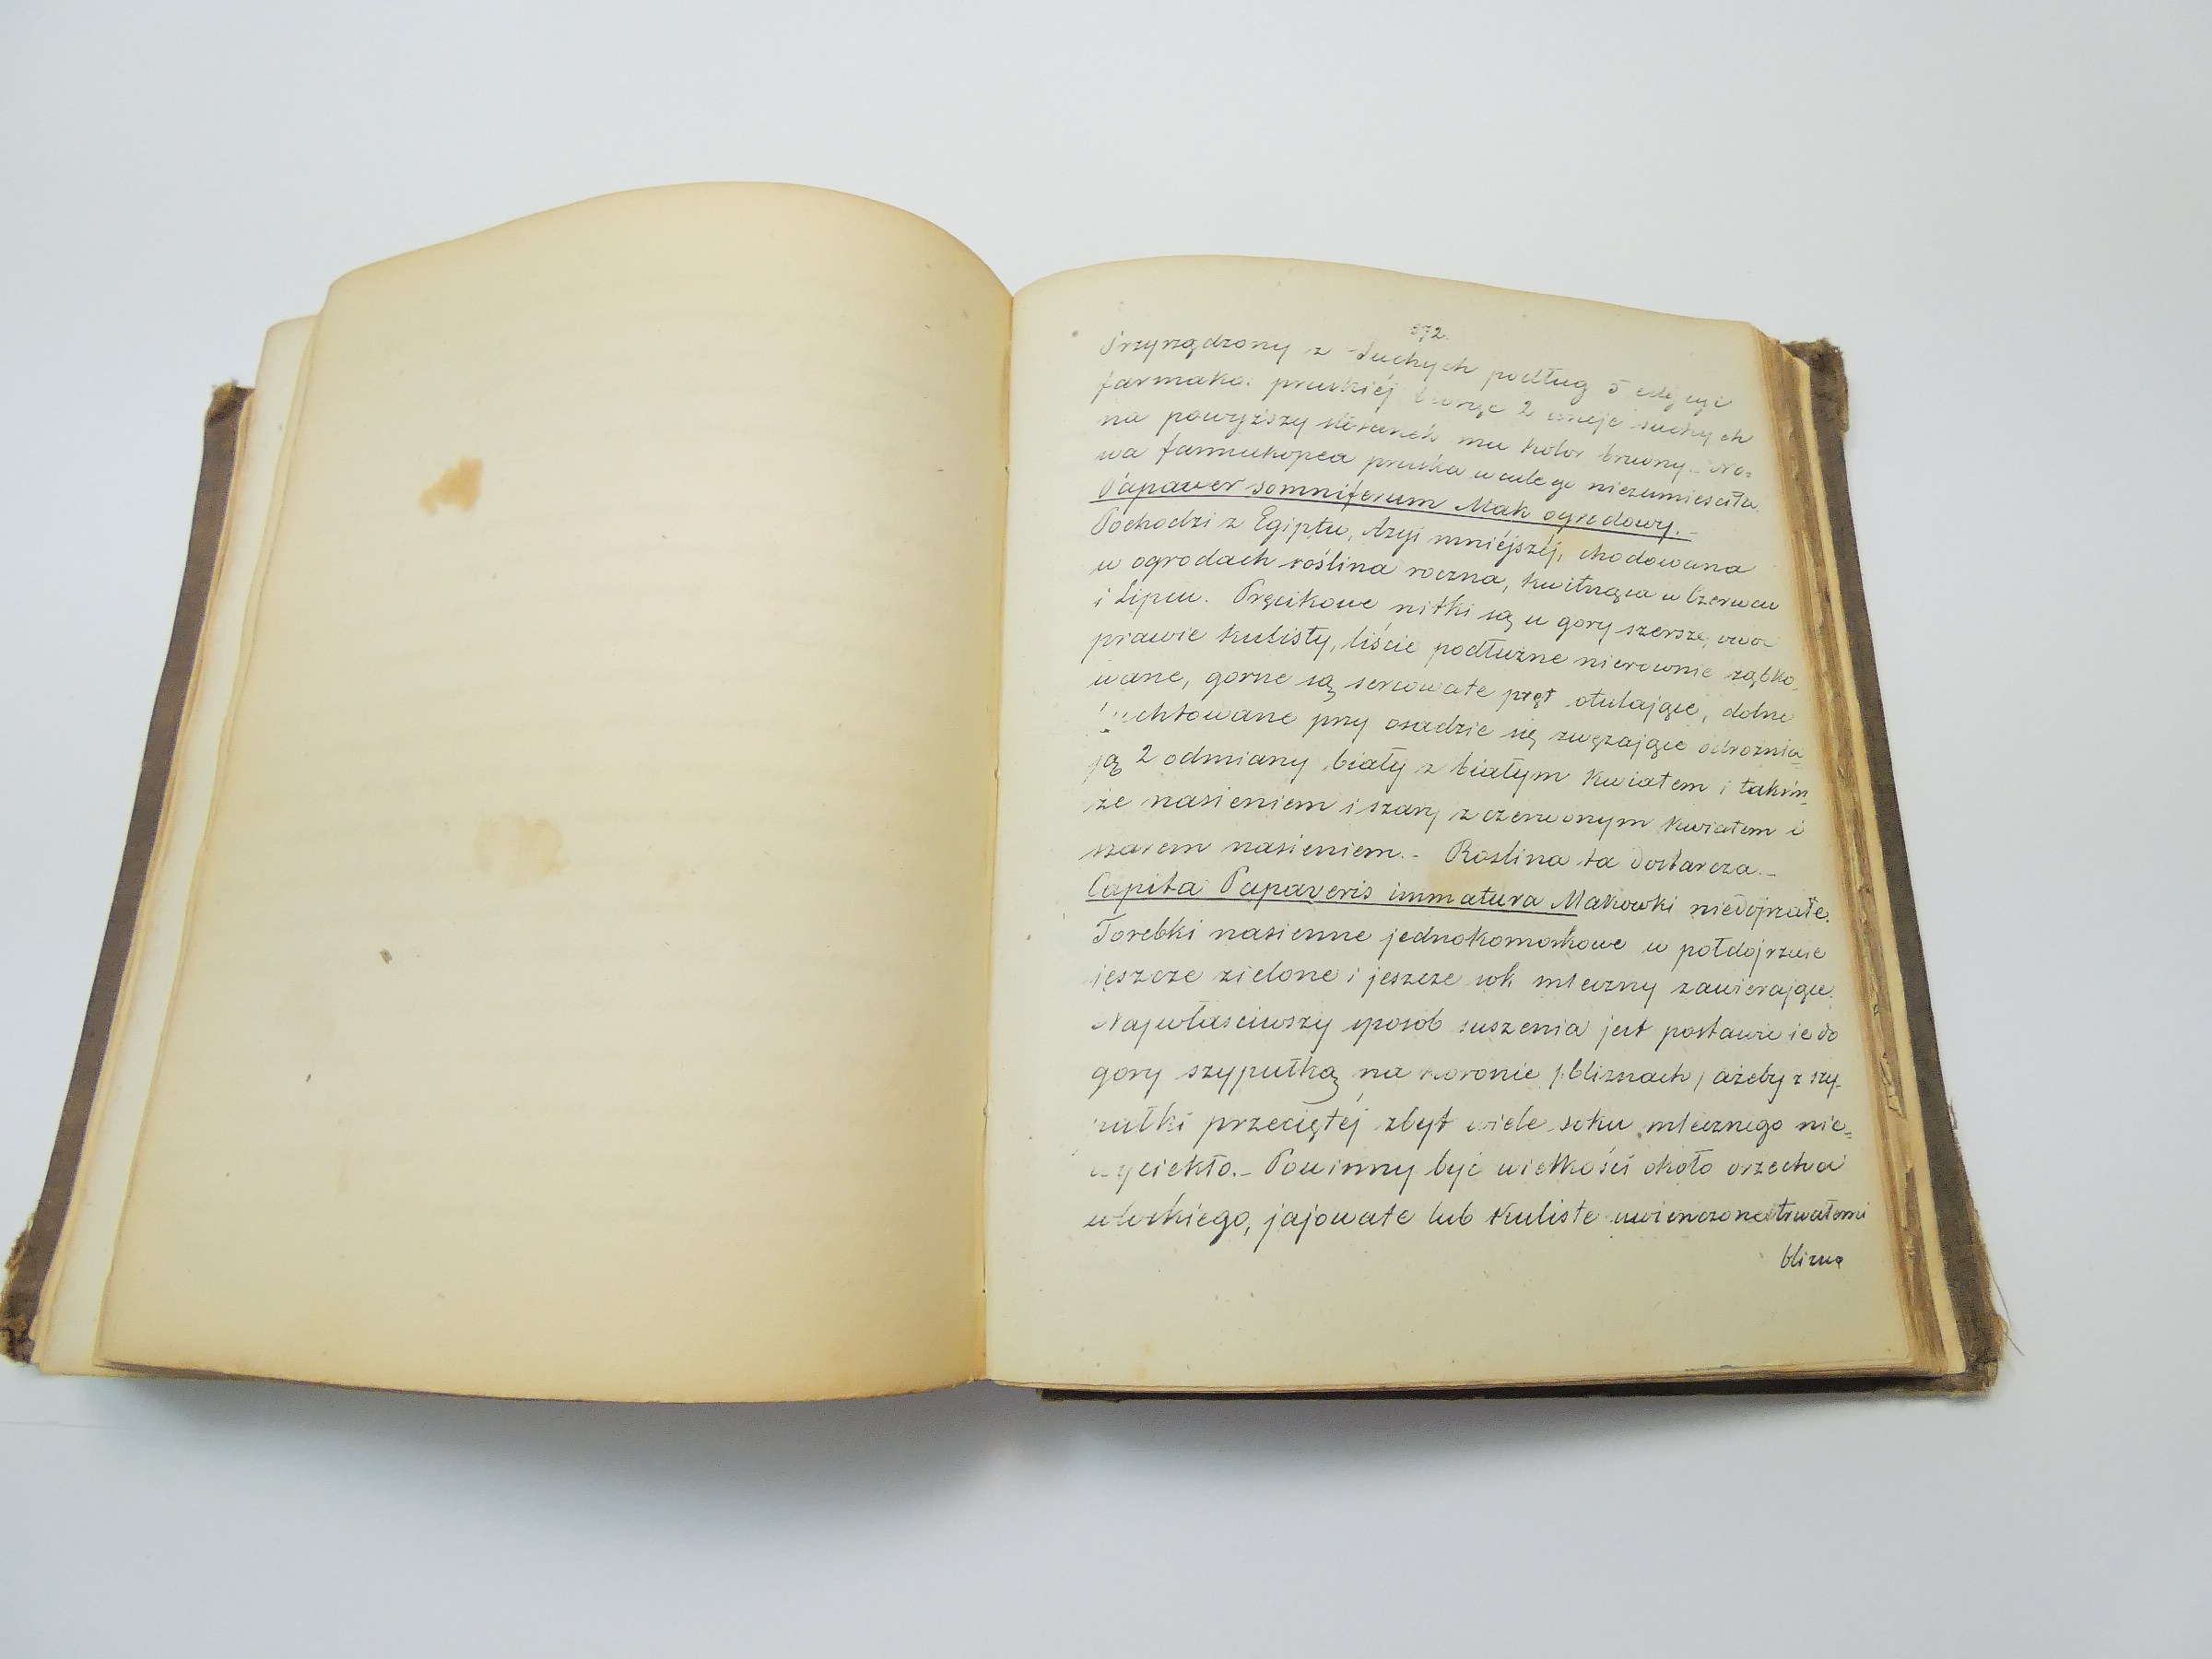 572.
Przyrządzony z Suchych podług 5 edycyi
farmako: pruskiéj biorąc 2 uncje suchych
na powyższy stosunek ma kolor brunny. No=
wa farmakopea pruska wcale go niezamieściła.
Papaver somniferum Mak ogrodowy.-
Pochodzi z Egiptu, Azyi mniéjszéj, chodowana
w ogrodach roślina roczna, kwitnąca w Czerwcu
i Lipcu. Pręcikowe nitki są u gory szersze, owoc
prawie kulisty, liście podłużne nierownie ząbko,
wane, gorne są sercowate pręt otulające, dolne
przy osadzie się zwężające odrożnia=
ją 2 odmiany biały z białym kwiatem i takim,
że nasieniem i szary z czerwonym kwiatem i
szarem nasieniem.- Roslina ta dostarcza.-
Capita Papaveris immatura Makowki niedojrzałe.
Torebki nasienne jednokomorkowe w połdojrzałe
jeszcze zielone i jeszcze sok mleczny zawierające.
Najwłaściwszy sposob suszenia jest postawić je do
gory szypułką na koronie /:bliznach/ ażeby z szy-
pułki przeciętéj zbyt wiele soku mlecznego nie=
wyciekło.- Powinny być wielkości około orzecha
włoskiego, jajowate lub kuliste uwienczone trwałemi
blizną